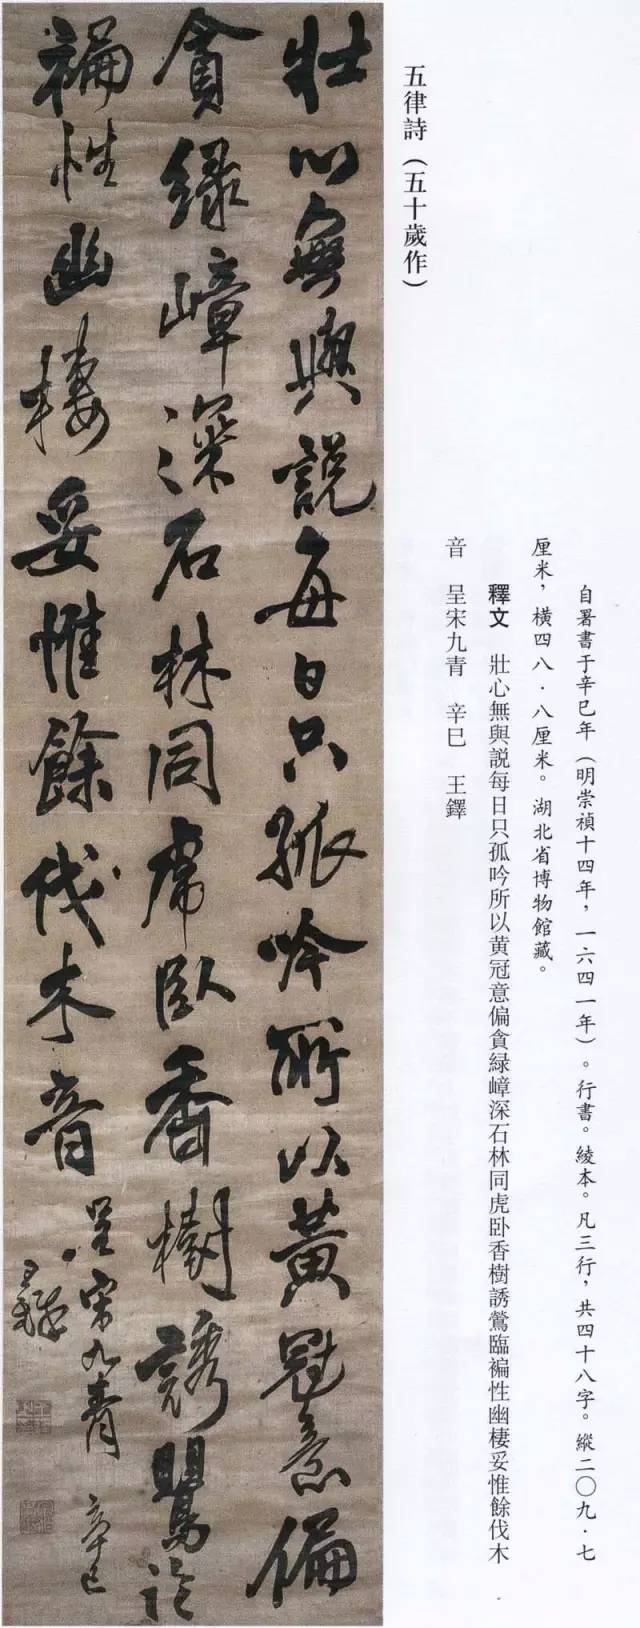 五律詩（五十歲作）
自署書于辛巳年（明崇禎十四年，一六四一年）。行書。綾本。凡三行，共四十八字。縱二〇九·七
厘米，橫四八·八厘米。湖北省博物館藏。
釋文　壯心無與説每日只孤吟所以黄冠意偏貪緑嶂深石林同虎卧香樹誘鶯臨褊性幽棲妥惟餘伐木
音　呈宋九青　辛巳　王鐸
壯心無與説每日只孤吟所以黃冠意偏
貪緑嶂深石林同虎臥香樹誘鶯臨
褊性幽棲妥惟餘伐木音 呈宋九青 辛巳
王鐸